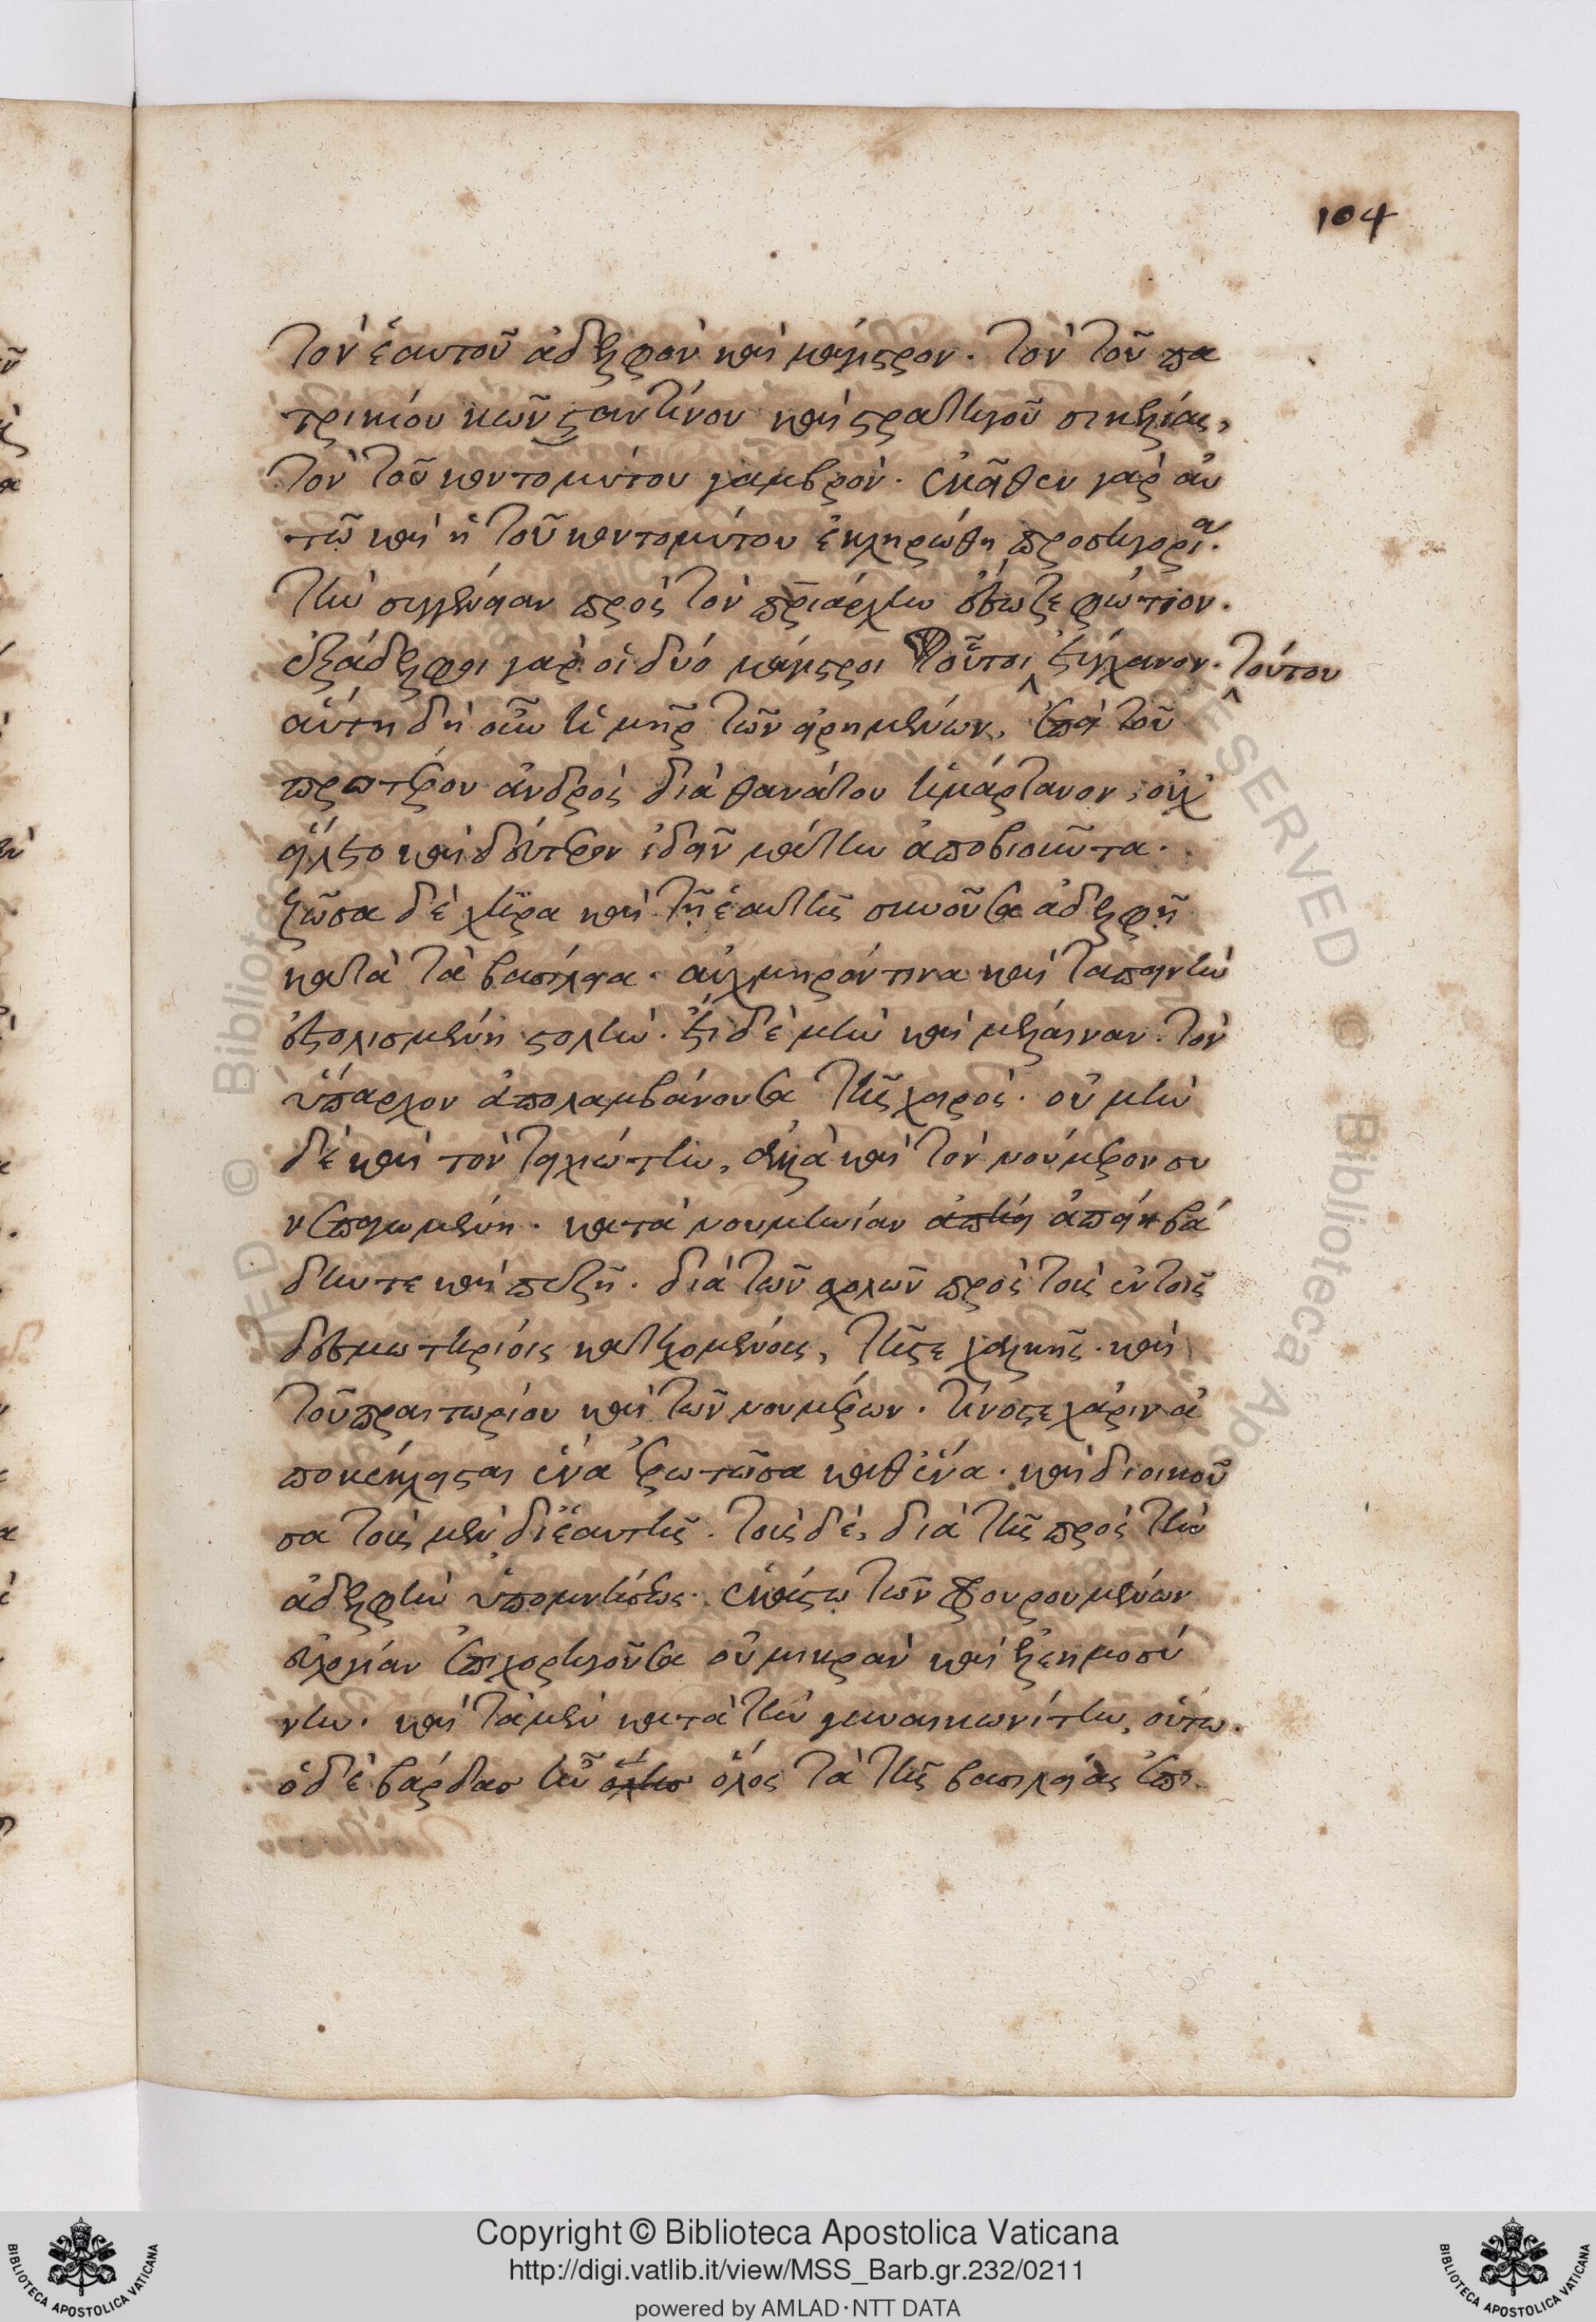 104
τὸν ἑαυτοῦ ἀδελφὸν καὶ μάγιστρον. τὸν τοῦ πα
τρικίου κωνσταντίνου καὶ στρατηγοῦ σικελίας,
τὸν τοῦ κοντομύτου γαμβρόν. ἐκεῖθεν γὰρ αὐ
τῶ καὶ ἡ τοῦ κοντομύτου ἐκληρώθη προσηγορία.
τὴν συγγένειαν πρὸς τὸν πριάρχην ἔσωζε φώτιον.
ἐξάδελφοι γὰρ οἱ δύο μάγιστροι οὗτοι ἐτύγχανον. τούτου
αὕτη δὴ οὖν ἡ μηρ τῶν εἰρημένων, ἐπεὶ τοῦ
προτέρου ἀνδρὸς διὰ θανάτου ἡμάρτανον, οὐχ
εἵλετο καὶ δεύτερον ἰδεῖν μάτην ἀποβιοῦντα.
ζῶσα δὲ χήρα καὶ τῇ ἑαυτῆς συνοῦσα ἀδελφῇ
κατὰ τὰ βασίλεια. αὐχμηρόν τινα καὶ ταπεινὴν
ἐστολισμένη στολήν. ἔτι δὲ μὴν καὶ μέλαιναν. τὸν
ὕπαρχον ἀπολαμβάνουσα τῆς χειρός. οὐ μὴν
δὲ καὶ τὸν τειχιώτην, ἀλλὰ καὶ τὸν νούμερον συ
νεπαγωμένη. κατὰ νουμηνίαν ἀπήει ἀπῄει βά
δην τε καὶ πεζῇ. διὰ τῶν σχολῶν πρὸς τοὺς ἐν τοῖς
δεσμωτηρίοις κατεχομένους, τῆς τε χαλκῆς. καὶ
τοῦ πραιτωρίου καὶ τῶν νουμέρων. τίνος τε χάριν ἀ
ποκέκλεισται ἕνα ἐρωτῶσα καθ ἕνα. καὶ διοικοῦ
σα τοὺς μὲν δι ἑαυτῆς. τοὺς δὲ, διὰ τῆς πρὸς τὴν
ἀδελφὴν ὑπομνήσεως. ἑκάστω τῶν φρουρουμένων
εὐλογίαν ἐπιχορηγοῦσα οὐ μικρὰν καὶ ἐλεημοσύ
νην. καὶ τὰ μὲν κατὰ τὴν γυναικωνίτην, οὕτω.
ὁ δὲ βάρδας ἦν ὅλος τὰ τῆς βασιλείας ἐπι
Copyright © Biblioteca Apostolica Vaticana
http://digi.vatlib.it/view/MSS_Barb.gr.232/0211
powered by AMLAD·NTT DATA